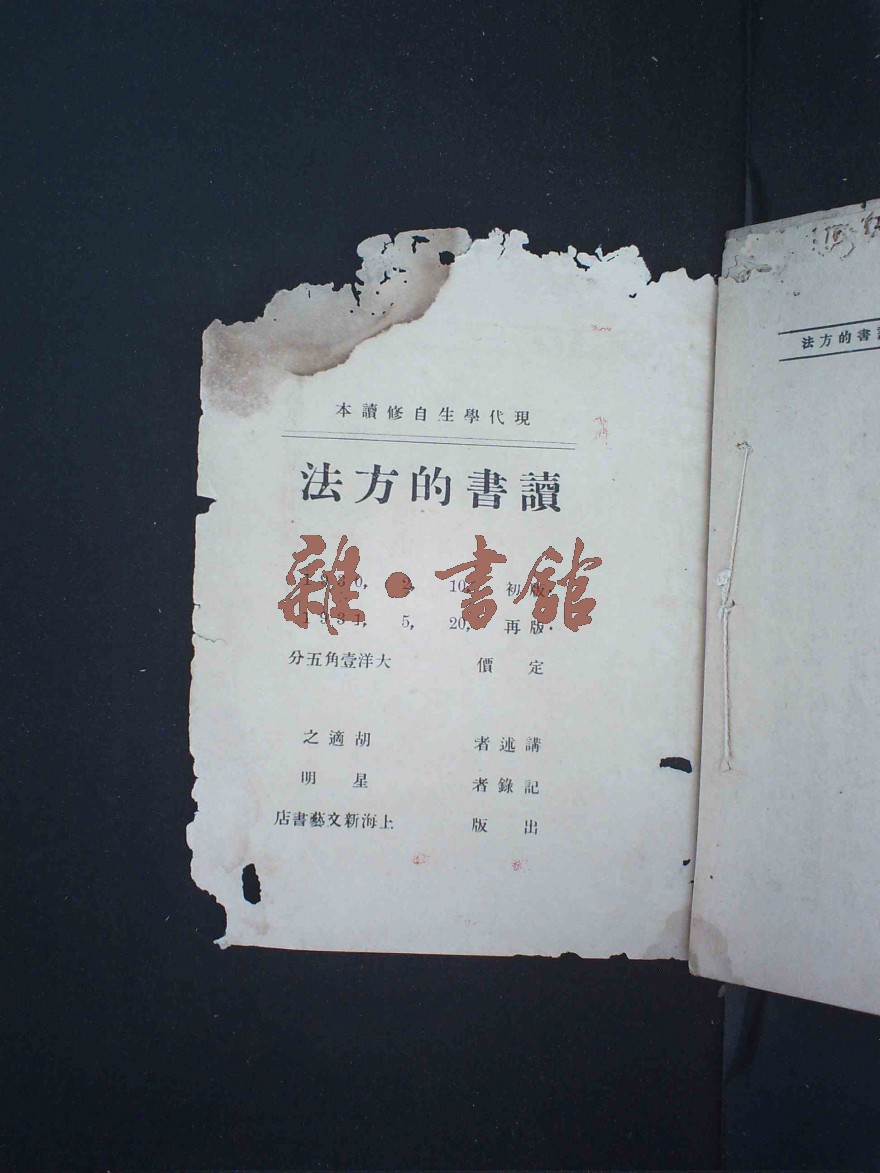 現代學生自修讀本
讀書的方法
1930, 2, 10, 初版·
1931, 5, 20, 再版·
定價 大洋壹角五分
講述者 胡適之
記錄者 星明
出版 上海新文藝書店
雜·書館
書的方法